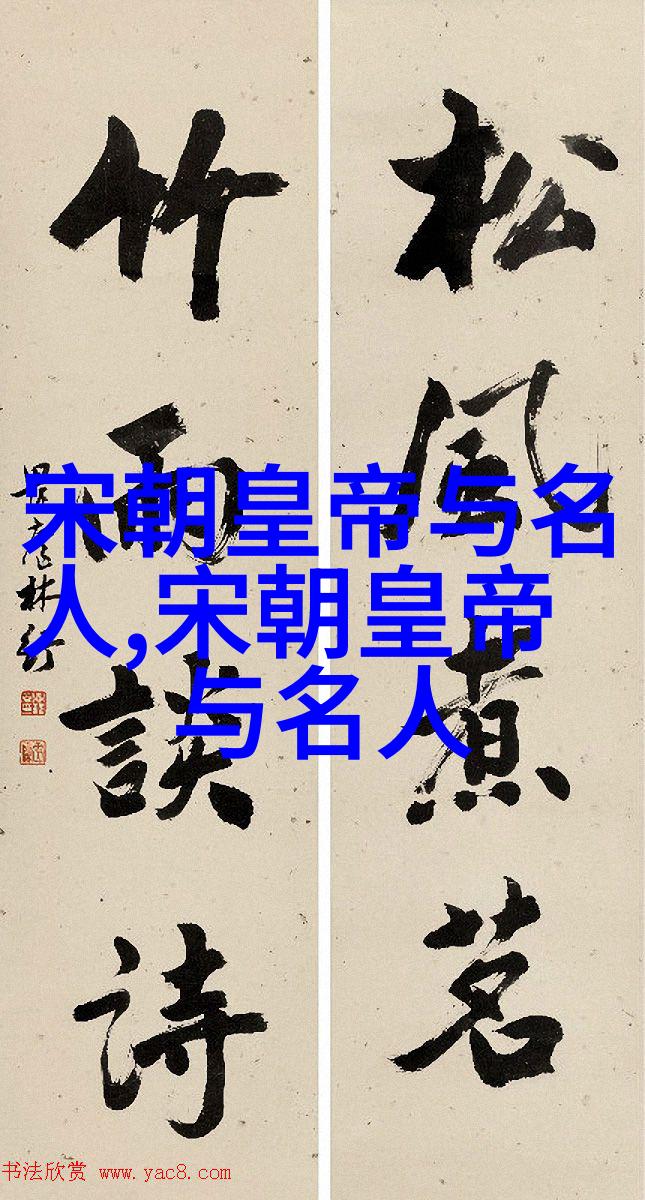 松風煮茗
竹雨談詩
宋朝皇帝与名
人,宋朝皇帝
与名人
书法欣赏 www.yac8.com